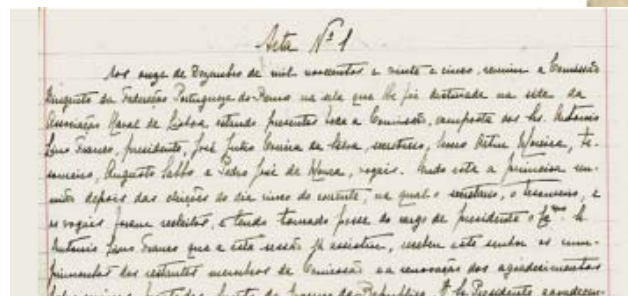 Acta Nº 1
Aos onze de Dezembro de mil novecentos e vinte e cinco, reuniu a Comissão
Dirigente da Federação Portugueza do Remo na sala que lhe foi destinada na séde da
Associação Naval de Lisboa, estando presentes toda a Comissão, composta dos Srs. Antonio
Lino Franco, presidente, José Correia da secretario, Artur Moreira, te-
soureiro, Augusto e Pedro José de Moura, vogais. Sendo esta a primeira reu-
nião depois das eleições do dia nove do corrente, na qual o secretario, o tesoureiro, e
os vogais foram reeleitos, e tendo tomado posse do cargo de presidente o Sr.
Antonio Lino Franco que a esta sessão já assistiu, recebeu este senhor os cum-
primentos dos restantes membros da Comissão e a renovação dos agradecimentos
da Republica. O Sr. Presidente